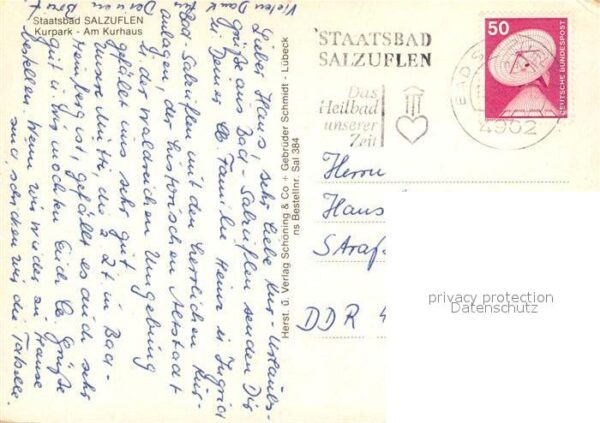 Staatsbad SALZUFLEN
Kurpark - Am Kurhaus
Vielen Dank
Lieber Hans, sehr liebe Kur-Urlaubs-
Grüße aus Bad-Salzuflen senden Dir
u. Deiner lb. Familie Heinz u. Ingrid
Bad-Salzuflen mit den herrlichen Kur-
anlagen, der historischen Altstadt
u. der waldreichen Umgebung
gefällt uns sehr gut.
Unsre Mutti, die z. Zt. in Bad-
Meinberg ist, gefällt es auch sehr
gut u. wir möchten Euch lb. Grüße
bestellen. Wenn wir wieder zu Hause
sind, schicken wir die Tabelle.
Herst. u. Verlag Schöning & Co + Gebrüder Schmidt - Lübeck
ns Bestellnr. Sal 384
STAATSBAD
SALZUFLEN
Das
Heilbad
unserer
Zeit
BAD S
4902
50
DEUTSCHE BUNDESPOST
Herrn
Hans
Straß
DDR 4
privacy protection
Datenschutz